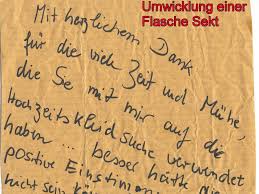 Umwicklung einer
Flasche Sekt
Mit herzlichem Dank
für die viele Zeit und Mühe,
die Sie mit mir auf die
Hochzeitskleidsuche verwendet
haben... besser hätte die
positive Einstimmung
nicht sein